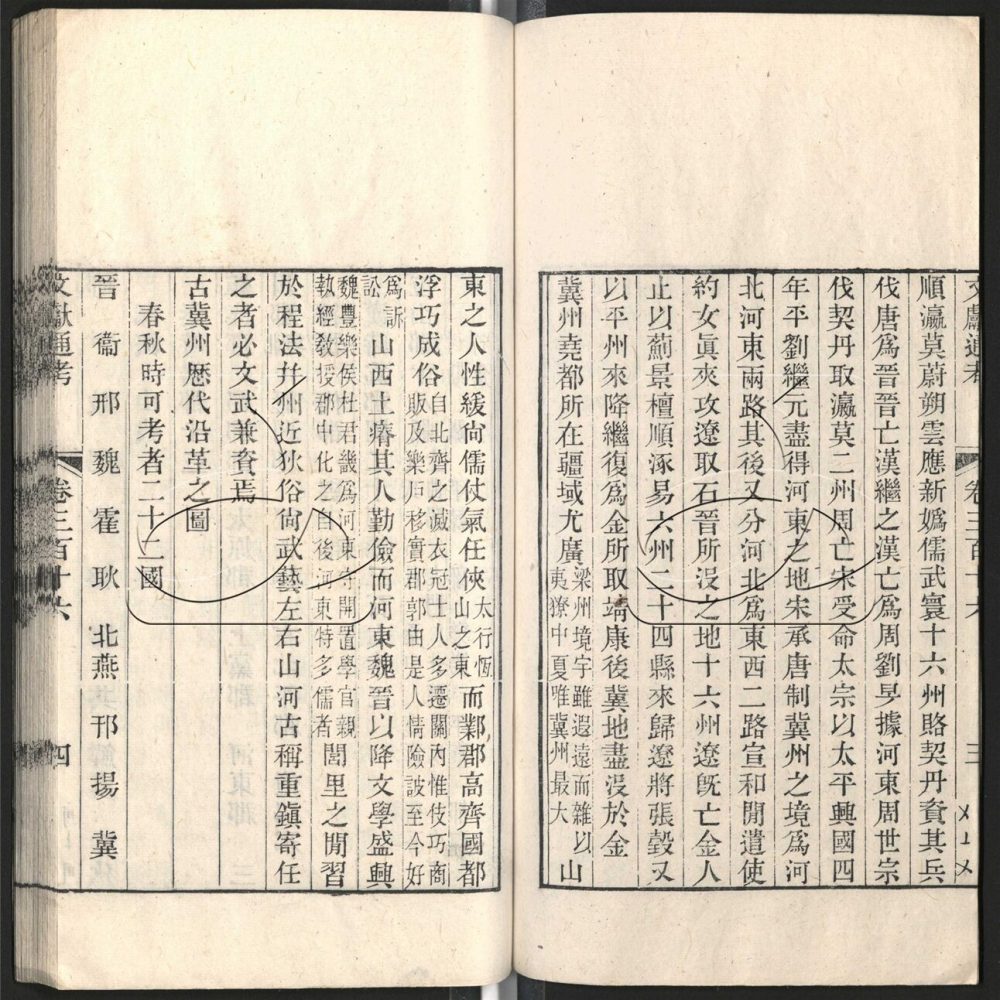 文獻通考 卷三百十六 三
順瀛莫蔚朔雲應新媯儒武寰十六州賂契丹資其兵
伐唐爲晉晉亡漢繼之漢亡爲周劉旻據河東周世宗
伐契丹取瀛莫二州周亡宋受命太宗以太平興國四
年平劉繼元盡得河東之地宋承唐制冀州之境爲河
北河東兩路其後又分河北爲東西二路宣和閒遣使
約女眞夾攻遼取石晉所沒之地十六州遼旣亡金人
止以薊景檀順涿易六州二十四縣來歸遼將張瑴又
以平州來降繼復爲金所取靖康後冀地盡沒於金
冀州堯都所在疆域尤廣梁州境宇雖遐遠而雜以夷獠中夏唯冀州最大山
東之人性緩尙儒仗氣任俠太行恆山之東而鄴郡高齊國都
浮巧成俗自北齊之滅衣冠士人多遷關內惟伎巧商販及樂戶移實郡郭由是人情險詖至今好
爲訴訟山西土瘠其人勤儉而河東魏晉以降文學盛興
魏豐樂侯杜君畿爲河東守開置學官親執經敎授郡中化之自後河東特多儒者閭里之閒習
於程法幷州近狄俗尙武藝左右山河古稱重鎭寄任
之者必文武兼資焉
古冀州歷代沿革之圖
春秋時可考者二十二國
晉 衞 邢 魏 霍 耿 北燕 邗 揚 冀
文獻通考 卷三百十六 四